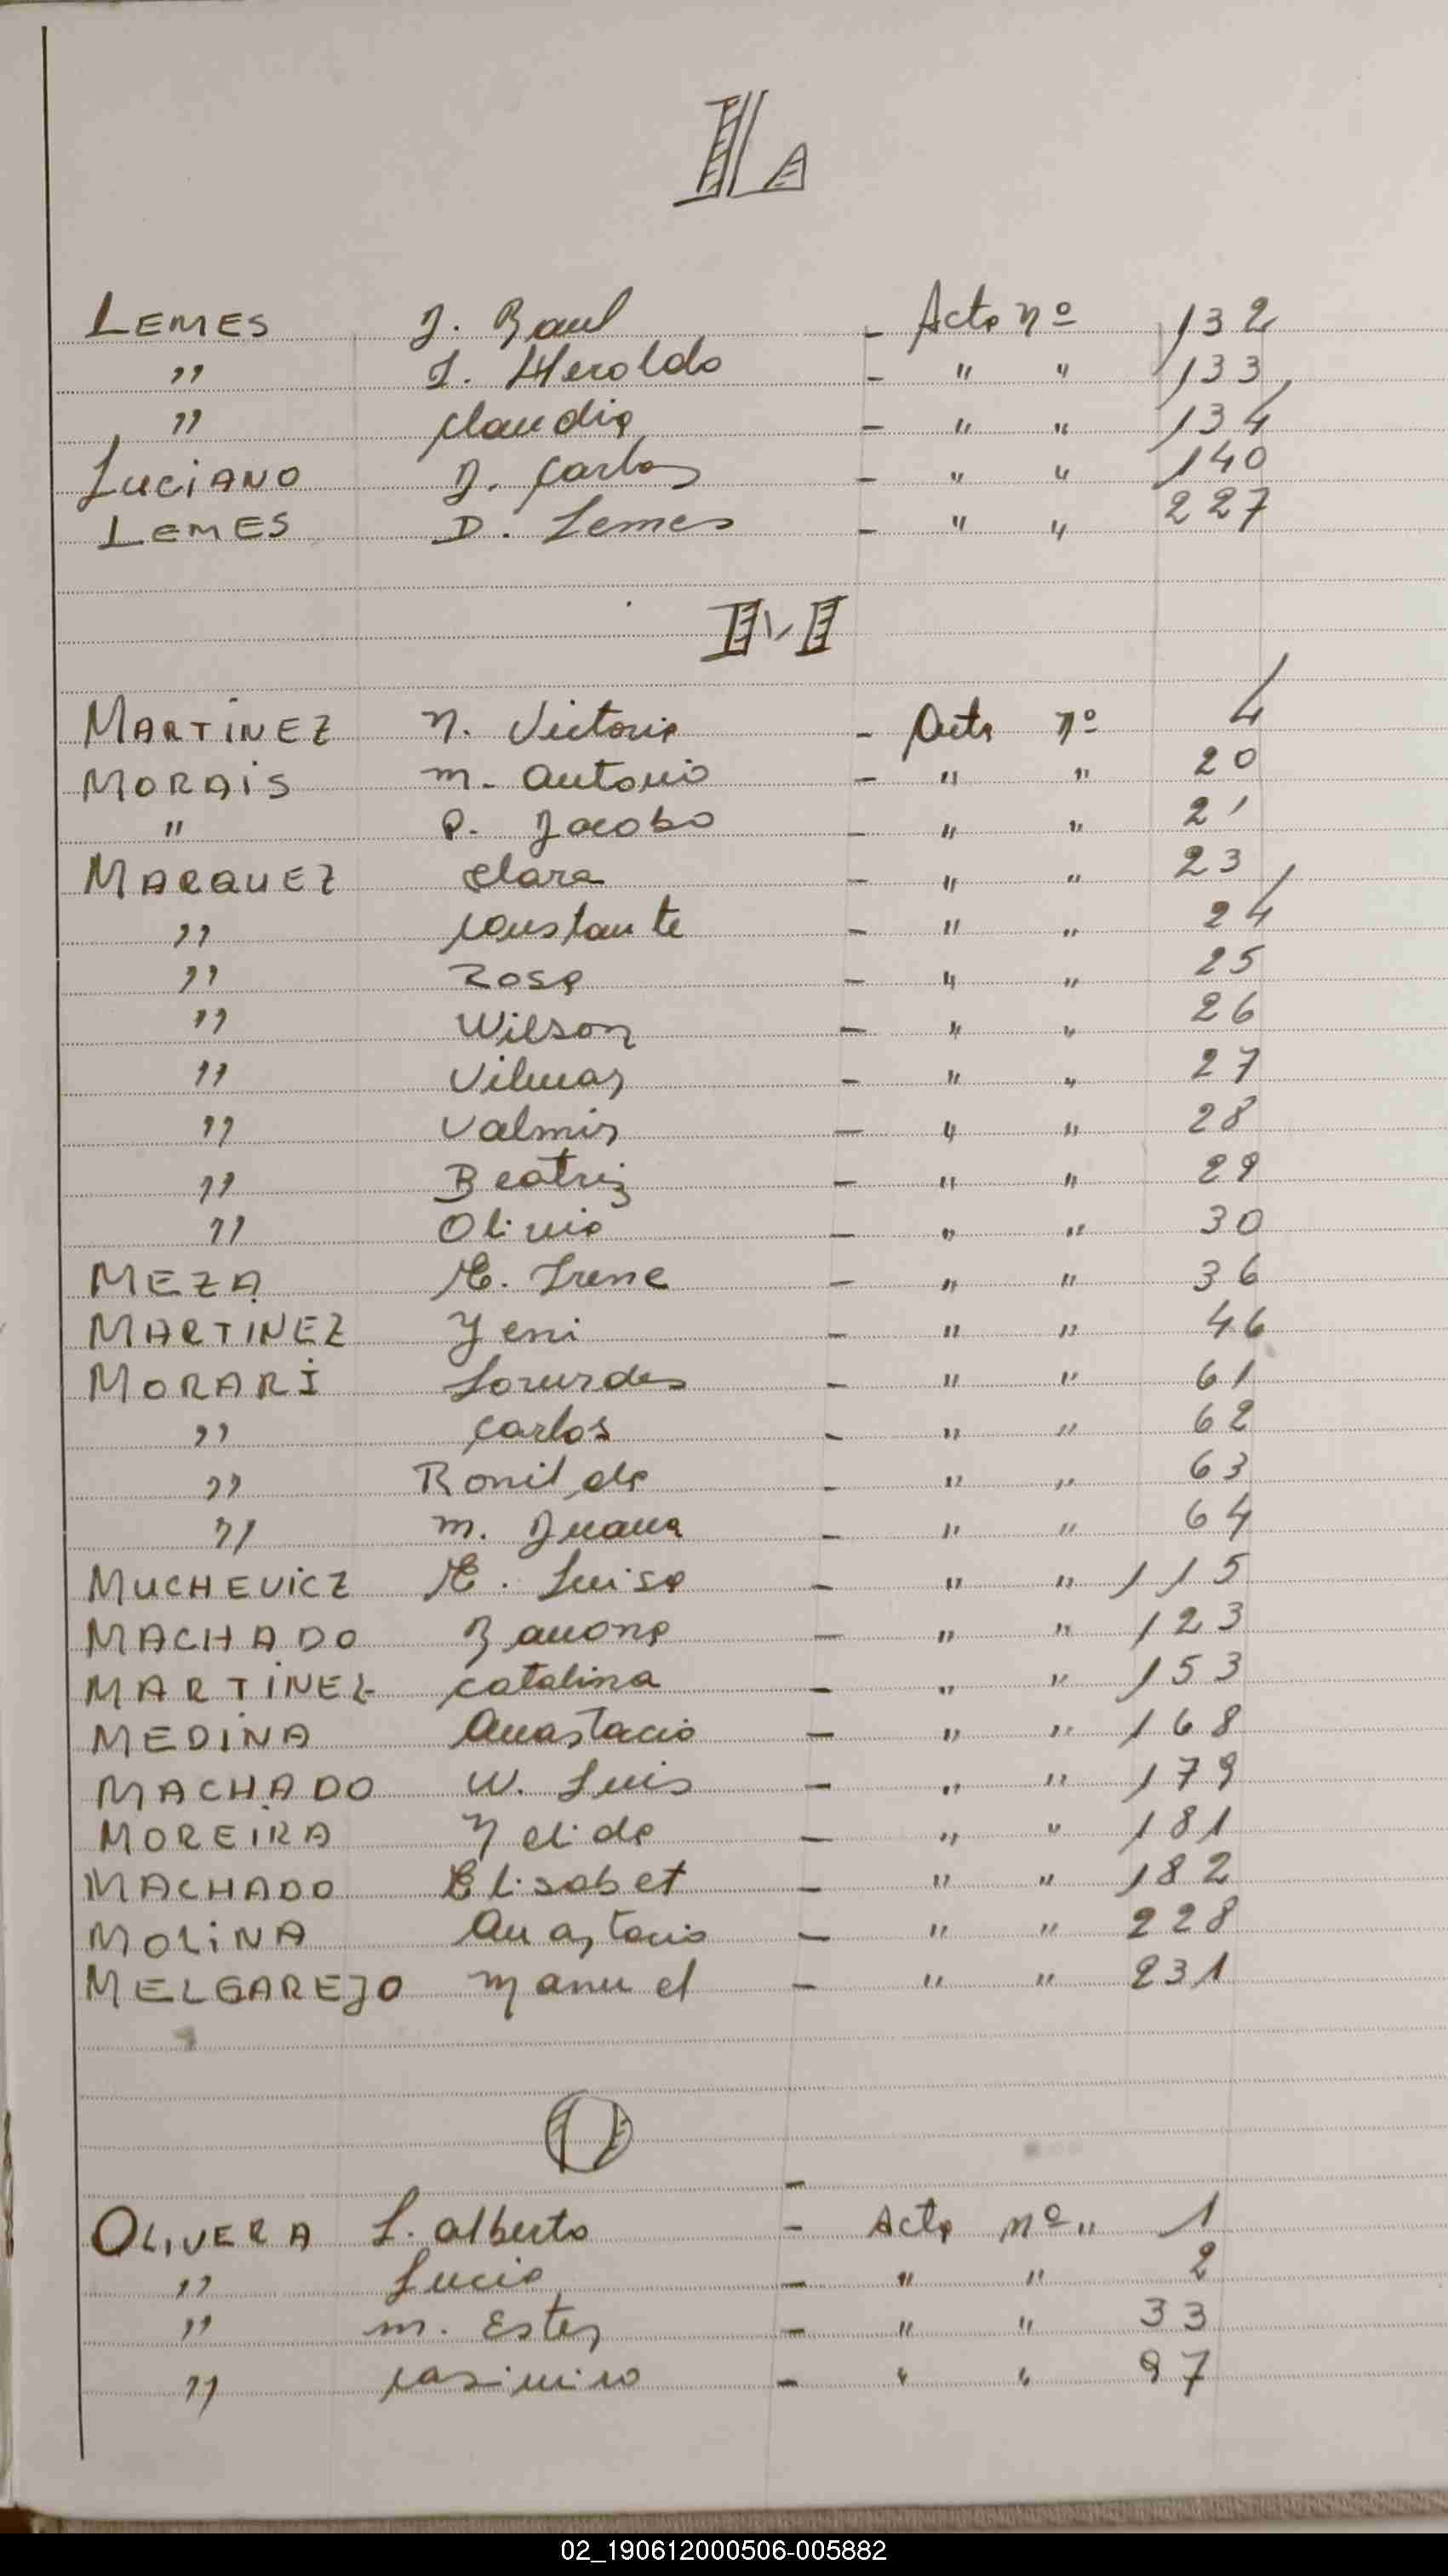 L
LEMES J. Raul - Acta nº 132
" J. Heroldo - " " 133
" Claudia - " " 134
LUCIANO J. Carlos - " " 140
LEMES D. Lemes - " " 227
M
MARTINEZ N. Victoria - Acta nº 4
MORAIS M. Antonio - " " 20
" P. Jacobo - " " 21
MARQUEZ Clara - " " 23
" Constante - " " 24
" Rosa - " " 25
" Wilson - " " 26
" Vilmar - " " 27
" Valmir - " " 28
" Beatriz - " " 29
" Olivia - " " 30
MEZA M. Irene - " " 36
MARTINEZ Yeni - " " 46
MORARI Lourdes - " " 61
" Carlos - " " 62
" Ronilda - " " 63
" M. Juana - " " 64
MUCHEVICZ M. Luisa - " " 115
MACHADO Ramona - " " 123
MARTINEZ Catalina - " " 153
MEDINA Anastacio - " " 168
MACHADO W. Luis - " " 179
MOREIRA Nelida - " " 181
MACHADO Elisabet - " " 182
MOLINA Anastacio - " " 228
MELGAREJO Manuel - " " 231
O
-
OLIVERA L. Alberto - Acta nº " 1
" Lucia - " " 2
" M. Ester - " " 33
" Casimiro - " " 97
02_190612000506-005882